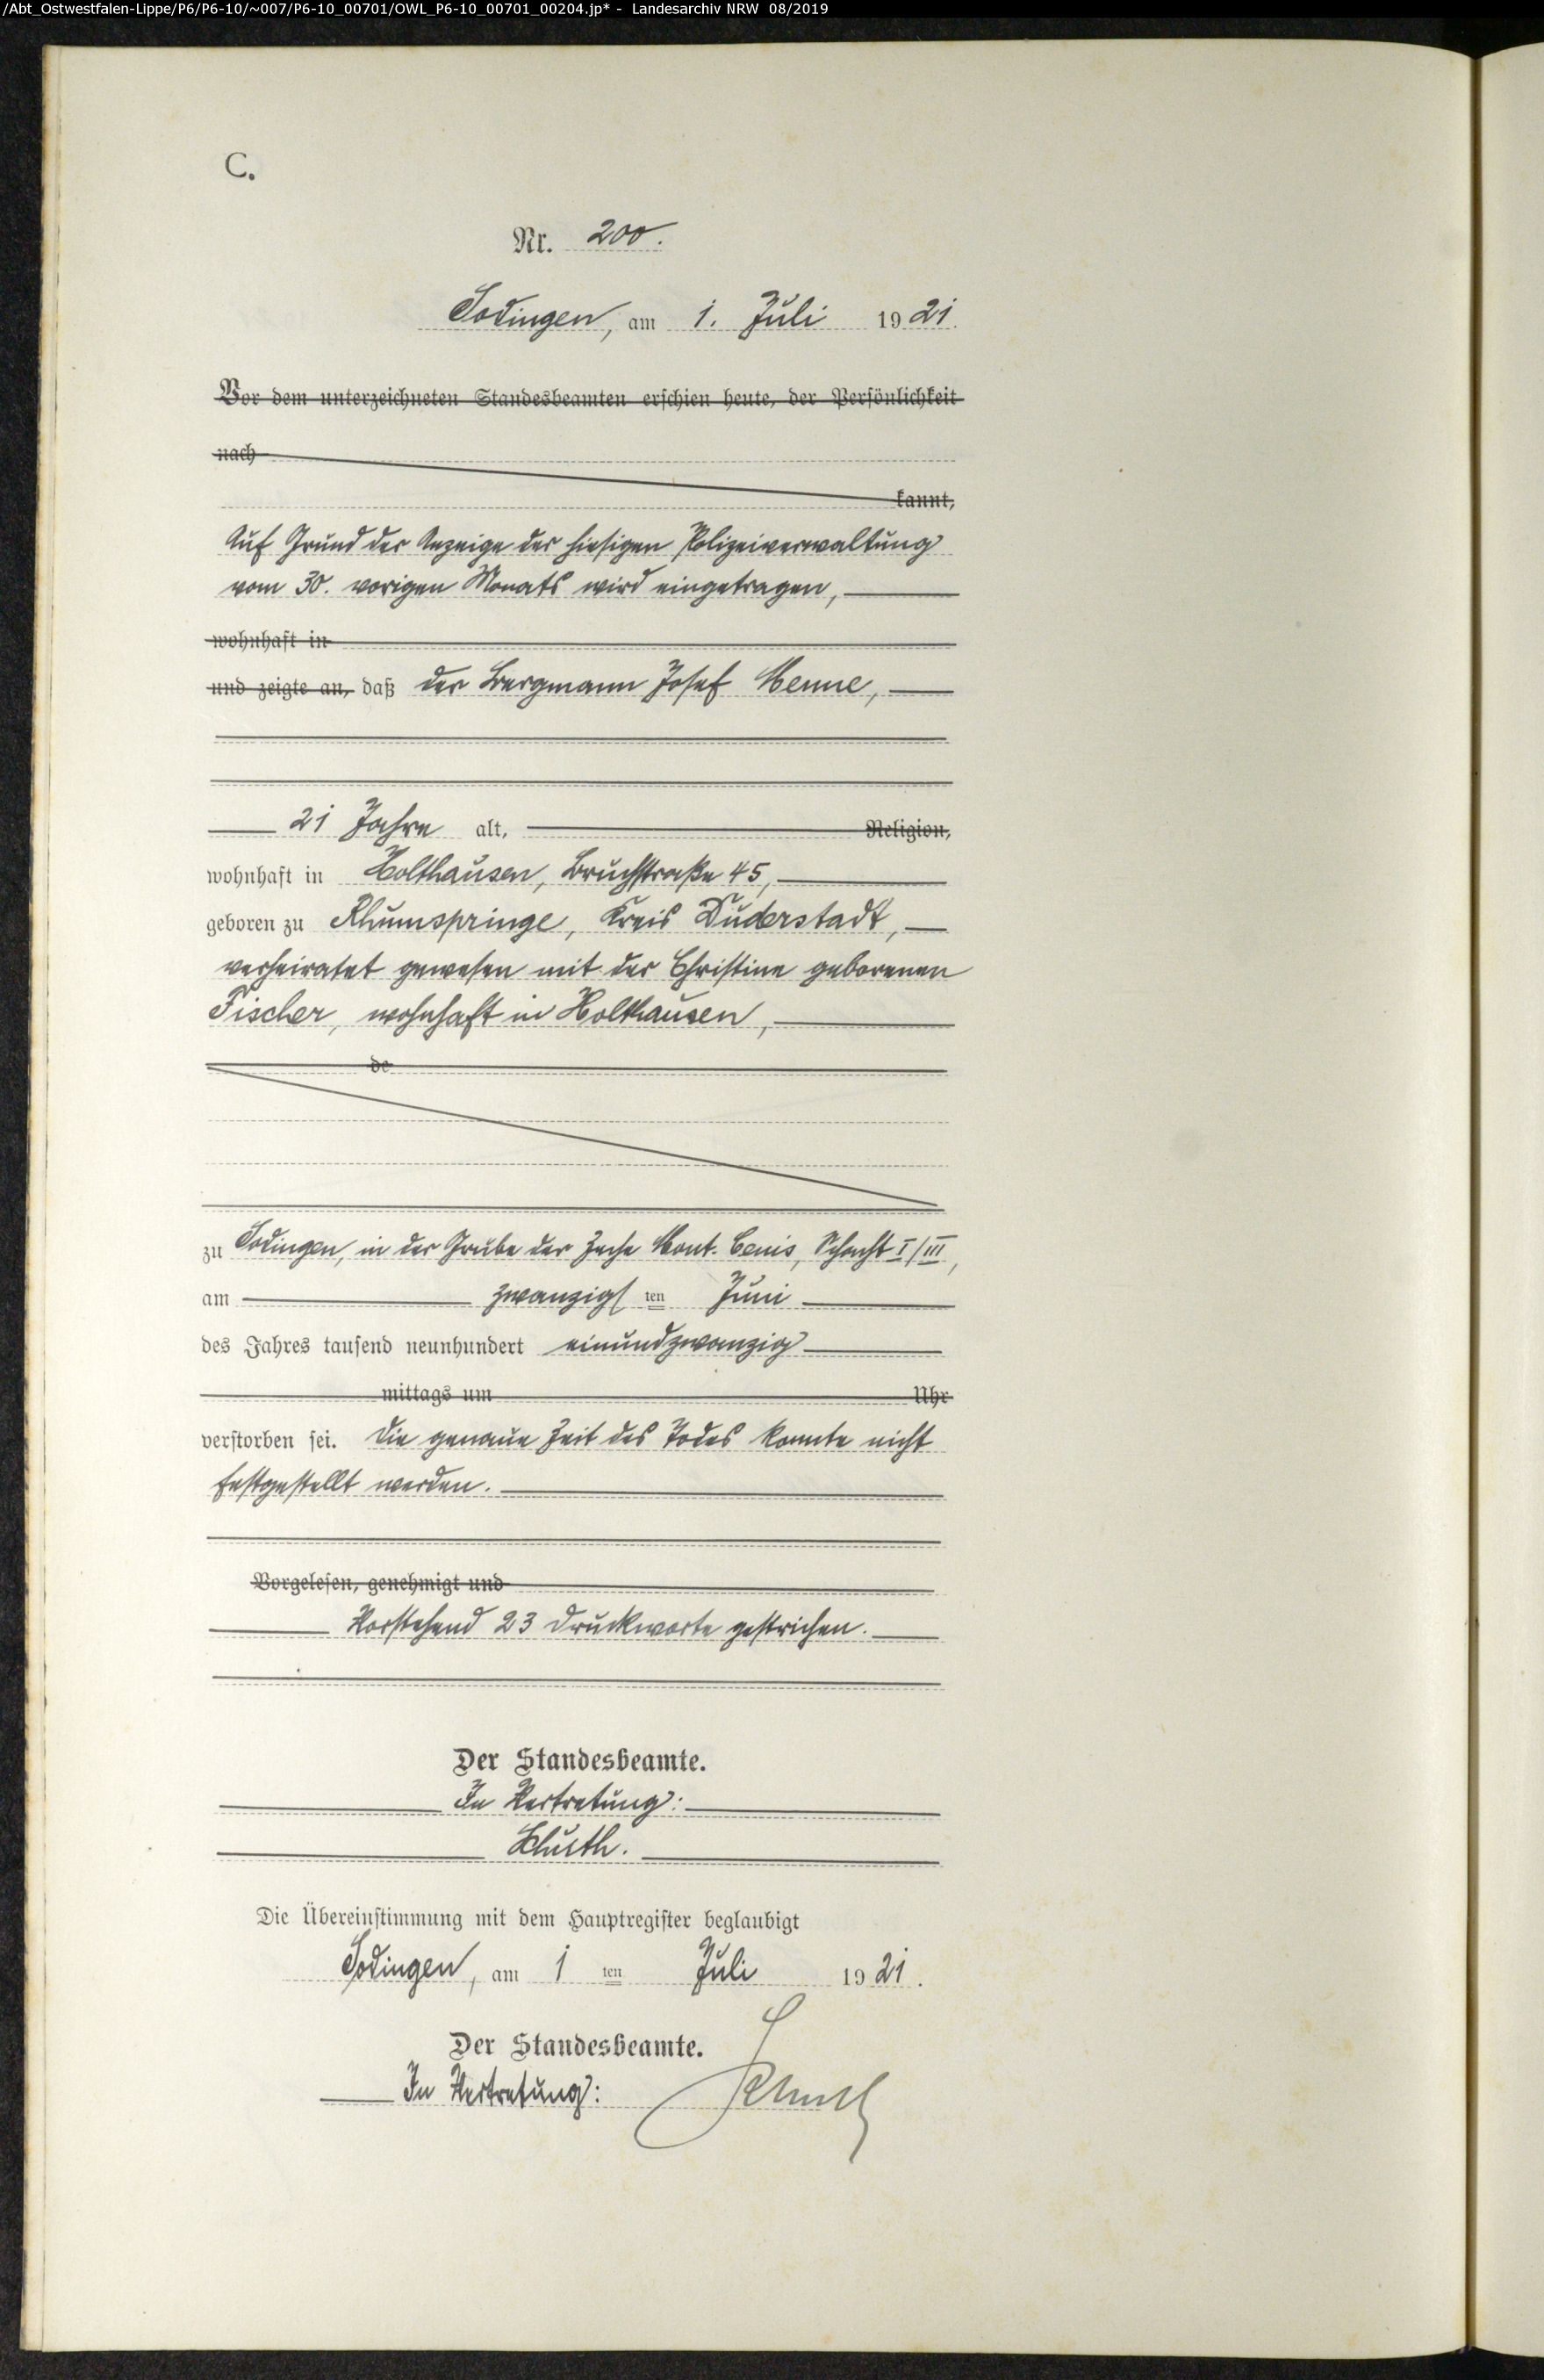 /Abt_Ostwestfalen-Lippe/P6/P6-10/~007/P6-10_00701/OWL_P6-10_00701_00204.jp* - Landesarchiv NRW 08/2019
C.
Nr. 200.
Sodingen, am 1. Juli 1921.
Vor dem unterzeichneten Standesbeamten erschien heute, der Persönlichkeit
nach
kannt,
Auf Grund der Anzeige der hiesigen Polizeiverwaltung
vom 30. vorigen Monats wird eingetragen,
wohnhaft in
und zeigte an, daß der Bergmann Josef Menne,
21 Jahre alt, Religion,
wohnhaft in Holthausen, Bruchstraße 45,
geboren zu Rhumspringe, Kreis Duderstadt,
verheiratet gewesen mit der Christine geborenen
Fischer, wohnhaft in Holthausen,
de
zu Sodingen, in der Grube der Zeche Mont-Cenis, Schacht I/III,
am zwanzigsten Juni
des Jahres tausend neunhundert einundzwanzig
mittags um Uhr
verstorben sei. Die genaue Zeit des Todes konnte nicht
festgestellt werden.
Vorgelesen, genehmigt und
Vorstehend 23 Druckworte gestrichen.
Der Standesbeamte.
In Vertretung:
Die Übereinstimmung mit dem Hauptregister beglaubigt
Sodingen, am 1 ten Juli 1921.
Der Standesbeamte.
In Vertretung: